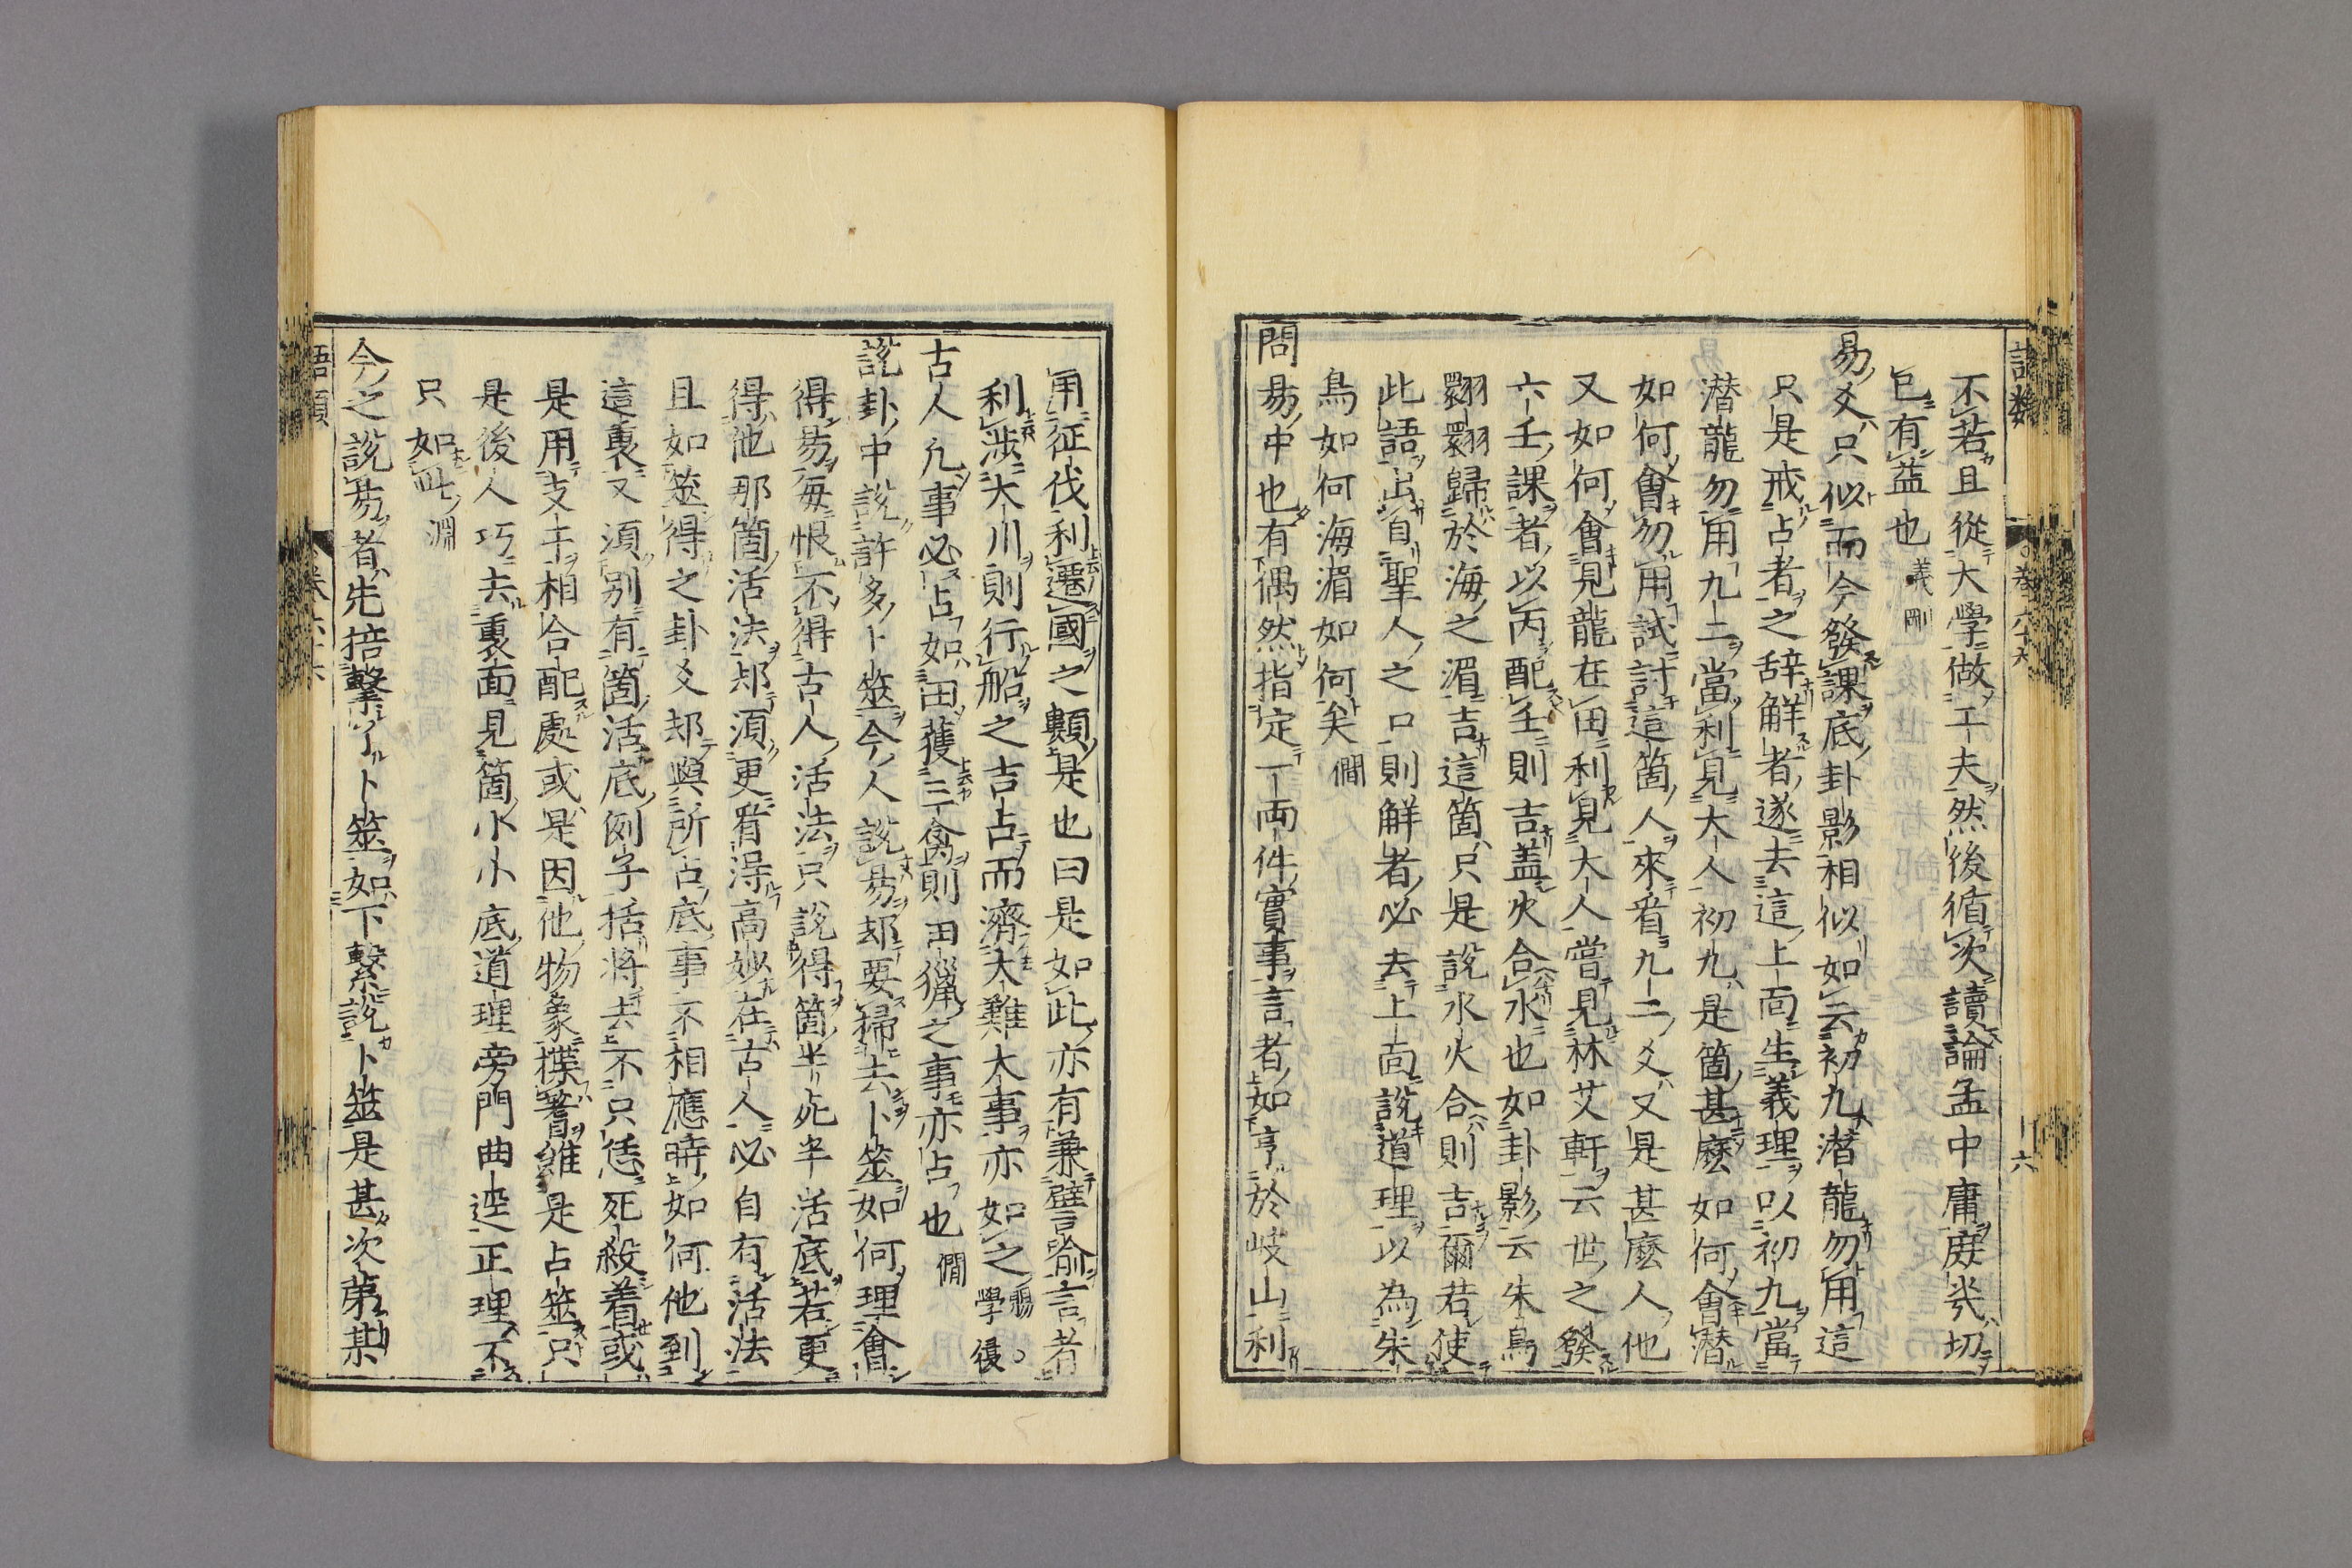 不若且從大學做工夫然後循次讀論孟中庸庶幾切
已有益也義剛
易爻只似而今發課底卦影相似如云初九潜龍勿用這
只是戒占者之辞解者遂去這上面生義理以初九當
潜龍勿用九二當利見大人初九是箇甚麼如何會潜
如何會勿用試討這箇人來看九二爻又是甚麼人他
又如何會見龍在田利見大人嘗見林艾軒云世之發
六壬課者以丙配壬則吉盖火合水也如卦影云朱鳥
翾翾歸於海之湄吉這箇只是説水火合則吉爾若使
此語出自聖人之口則解者必去上面説道理以為朱
鳥如何海湄如何矣僩
問易中也有偶然指定一両件實事言者如亨於岐山利
用征伐利遷國之類是也曰是如此亦有兼譬喻言者
利渉大川則行船之吉占而濟大難大事亦如之賜○學後
古人凢事必占如田獲三禽則田獵之事亦占也僩
説卦中説許多卜筮今人説易却要掃去卜筮如何理會
得易毎恨不得古人活法只説得箇半死半活底若更
得他那箇活法却須更看得高妙在古人必自有活法
且如筮得之卦爻却與所占底事不相應時如何他到
這裏又須别有箇活底例子括將去不只恁死殺着或
是用支干相合配處或是因他物象揲蓍雖是占筮只
是後人巧去裏面見箇小小底道理旁門曲逕正理不
只如此淵
今之説易者先掊擊了卜筮如下繫説卜筮是甚次第某
語類
卷六十六
六
語類
卷六十六